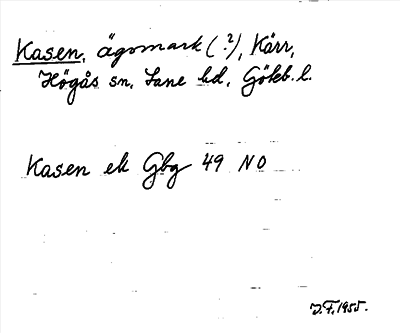 Kasen, ägomark (?), Kärr,
Högås sn, Lane hd, Gökb. l.
Kasen ek Gbg 49 NO
J.F. 1955.